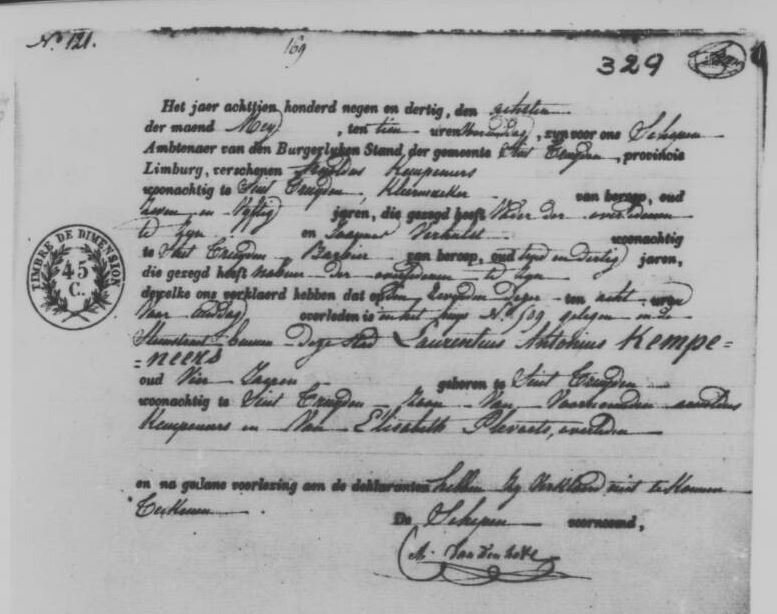 N.º 121.
169
329
Het jaer achttien honderd negen en dertig, den
der maend Mey, ten tien uren Voormiddag, zyn voor ons Schepen
Ambtenaer van den Burgerlyken Stand, der gemeente Sint Truyden, provincie
Limburg, verschenen Arnoldus Kempeneers
woonachtig te Sint Truyden, Kleermaeker van beroep, oud
Zessen en Vyftig jaren, die gezegd heeft Vader der overledenen
te Zyn en Verhulst woonachtig
te Sint Truyden Barbier van beroep, oud en dertig jaren,
die gezegd heeft Gebuer der overledenen te Zyn
dewelke ons verklaerd hebben dat op den Dezer ten acht uren
Voor middag overleden is in het huys N.º 539 gelegen in de
Steenstraet binnen Deze Stad Laurentius Antonius Kempe=
=neers
oud Vier Jaren geboren te Sint Truyden
woonachtig te Sint Truyden Zoon Van Voornoemden Arnoldus
Kempeneers en Van Elisabeth Plevoets, overleden
en na gedane voorlezing aen de deklaranten hebben Zy Verklaerd niet te Konnen
Teekenen
De Schepen voornoemd,
TIMBRE DE DIMENSION
45
C.